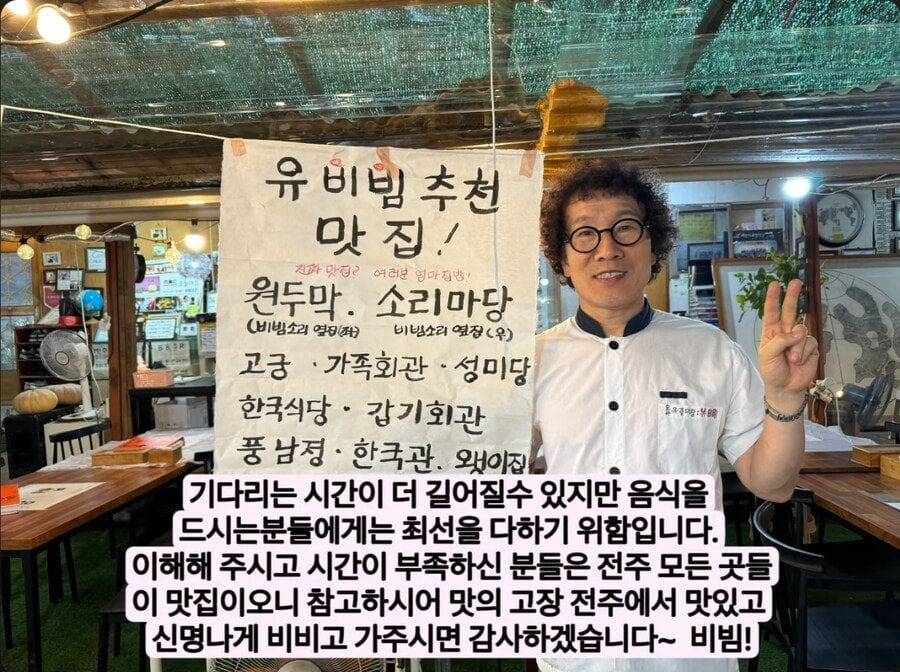 유 비빔 추천
맛집!
진짜 맛집? 여러분 엄마집밥!
원두막. 소리마당
(비빔소리 옆집(좌) 비빔소리 옆집(우)
고궁 · 가족회관 · 성미당
한국식당 · 갑기회관
풍남정 · 한국관. 옛이집
기다리는 시간이 더 길어질수 있지만 음식을
드시는분들에게는 최선을 다하기 위함입니다.
이해해 주시고 시간이 부족하신 분들은 전주 모든 곳들
이 맛집이오니 참고하시어 맛의 고장 전주에서 맛있고
신명나게 비비고 가주시면 감사하겠습니다~ 비빔!